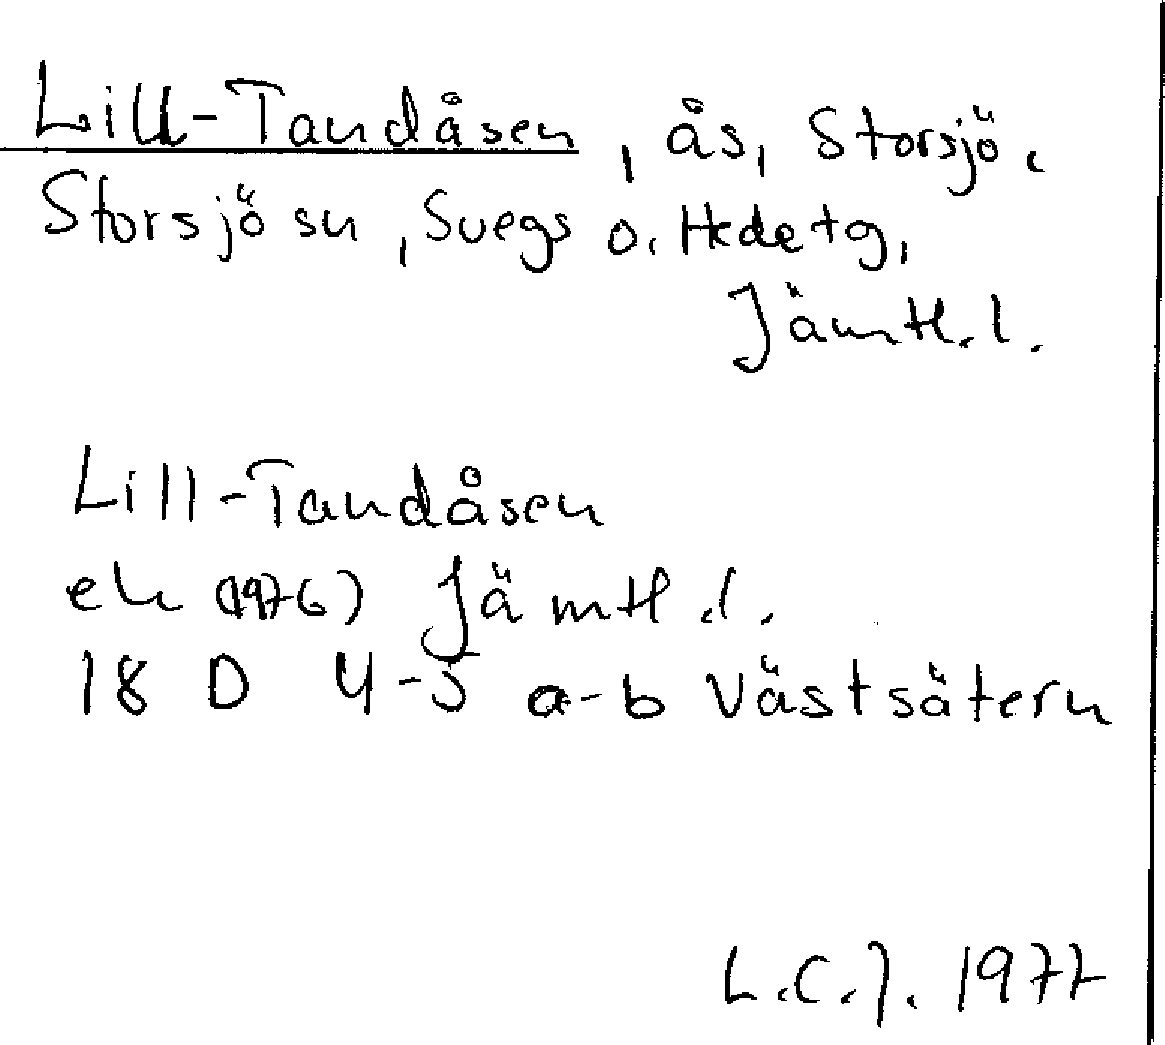 Lill-Tandåsen, ås, Storsjö.
Storsjö sn, Svegs o. Hede tg,
Jämtl. l.
Lill-Tandåsen
ek (1976) Jämtl. l.
18 D 4-5 a-b Västsätern
L.C.J. 1977